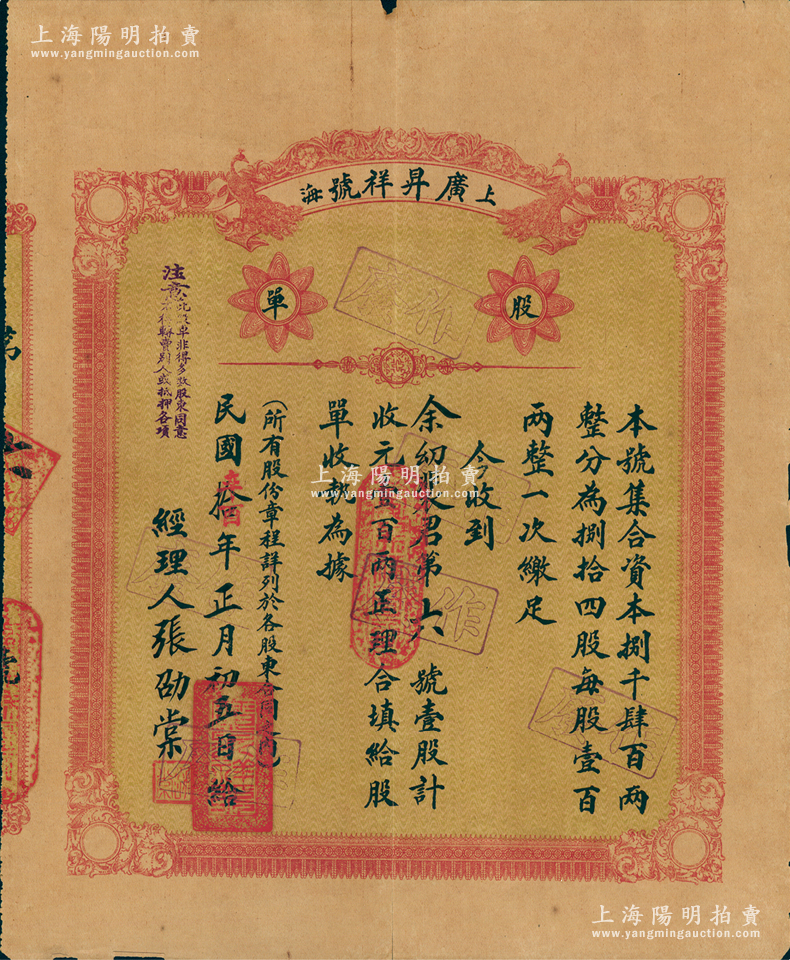 上海陽明拍賣
www.yangmingauction.com
上海陽明拍賣
www.yangmingauction.com
上海廣昇祥號
股單
本號集合資本捌千肆百両
整分為捌拾四股每股壹百
両整一次繳足
今收到
余幼棠君第六號壹股計
收元壹百両正理合填給股
單收執為據
(所有股份章程詳列於各股東合同內)
民國拾年正月初五日給
經理人張劭棠
注意此股單非得多數股東同意
不得轉賣別人或抵押各項
第
六
號
作廢
作廢
作
作廢
上海陽明拍賣
www.yangmingauction.com
上海陽明拍賣
www.yangmingauction.com